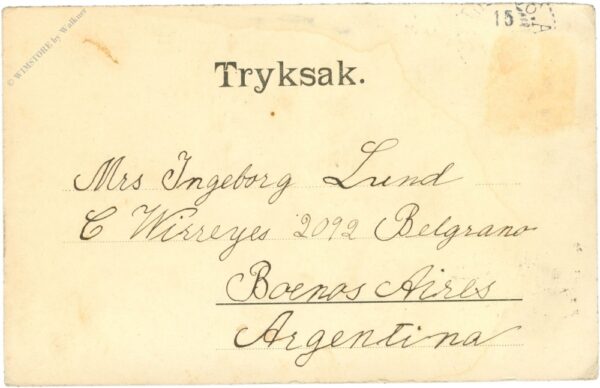 © WIMSTORE by Walkner
15
Tryksak.
Mrs Ingeborg Lund
C Wirreyes 2092 Belgrano
Boenos Aires
Argentina